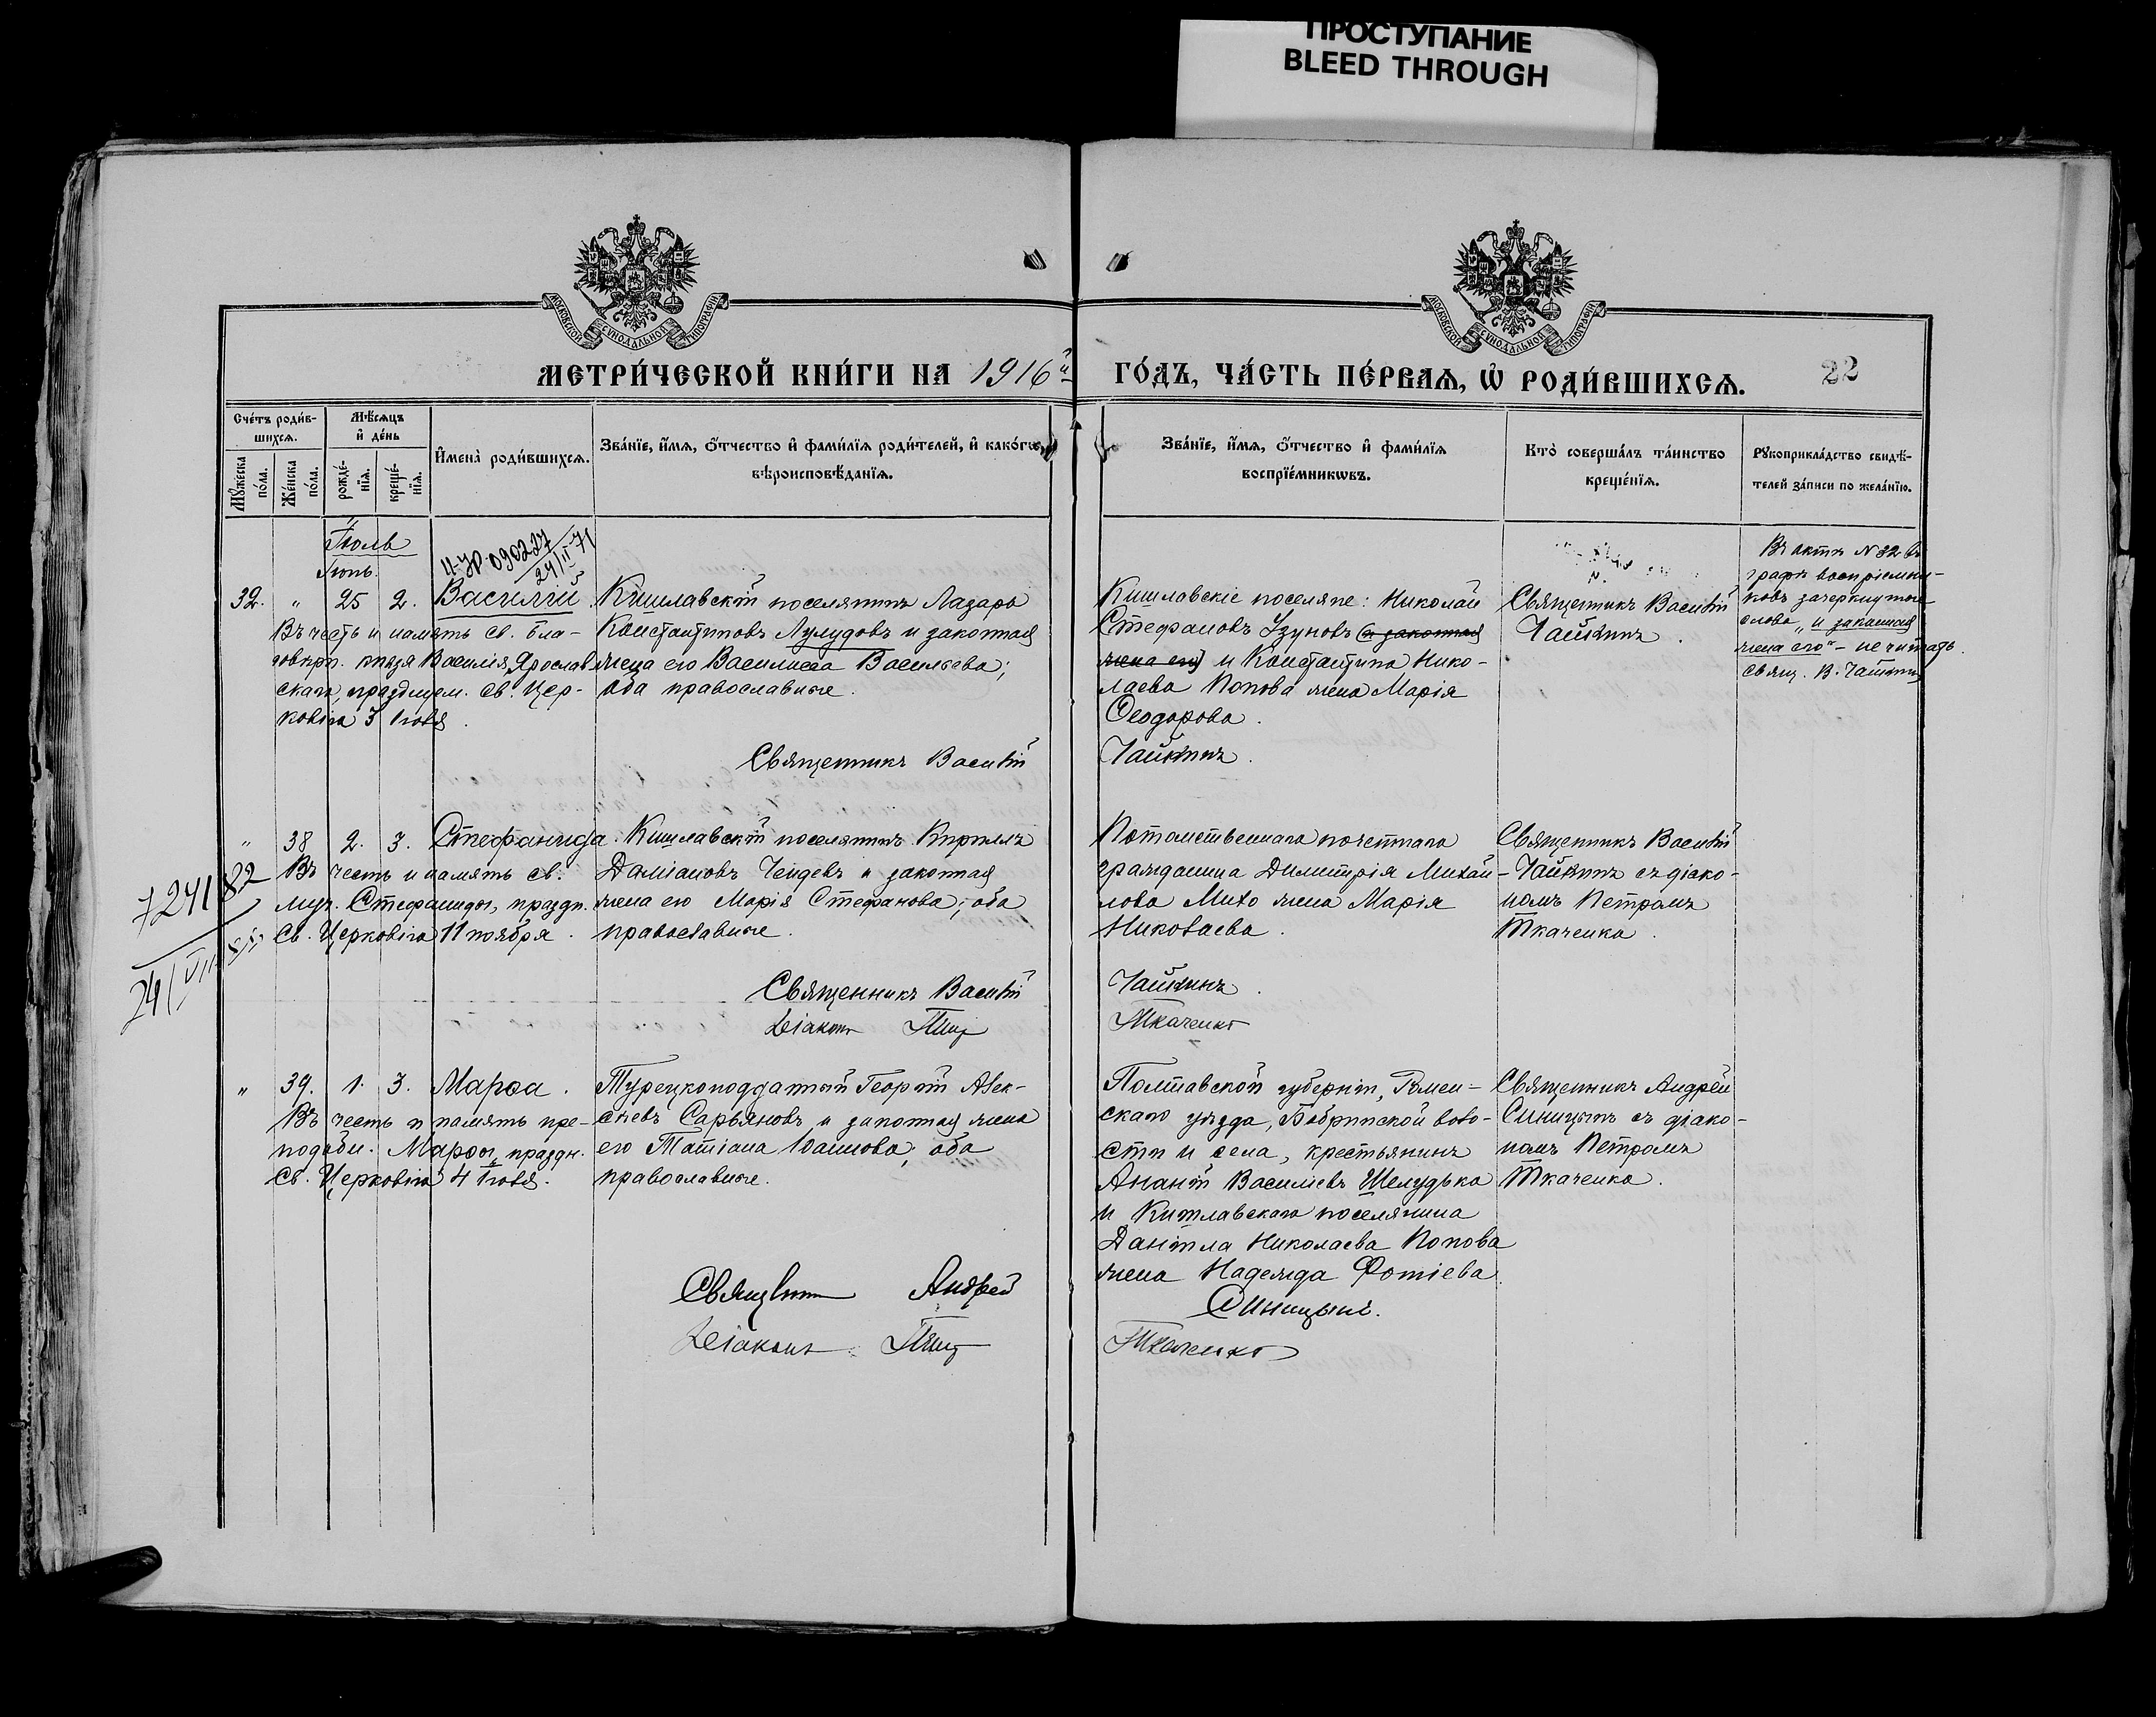 ПРОСТУПАНИЕ
BLEED THROUGH
МОСКОВСКОЙ СѴНОДАЛЬНОЙ ТИПОГРАФІИ
МОСКОВСКОЙ СѴНОДАЛЬНОЙ ТИПОГРАФІИ
МЕТРИ́ЧЕСКОЙ КНИ́ГИ НА 1916й
ГО́ДЪ, ЧА́СТЬ ПЕ́РВАѦ, Ѡ҆ РОДИ́ВШИХСѦ.
22
Сче́тъ роди́в-
шихсѧ.
Мѣ́сѧцъ
и҆ де́нь
Мꙋ́жеска по́ла.
Же́нска по́ла.
рожде́-
нїѧ.
креще́-
нїѧ.
И҆мена̀ роди́вшихсѧ.
Зва́нїе, и҆́мѧ, ѻ҆́тчество и҆ фами́лїѧ роди́телей, и҆ како́гѡ
вѣроисповѣ́данїѧ.
Зва́нїе, и҆́мѧ, ѻ҆́тчество и҆ фами́лїѧ
воспрїе́мникѡвъ.
Кто̀ соверша́лъ та́инство
креще́нїѧ.
Рꙋкоприкла́дство свидѣ́-
телей за́писи по жела́нїю.
Іюль
Іюнь.
II-УР 090227
24/II-71
32. " 25 2. Василій.
Въ честь и память св. бла-
говѣрн. князя Василія Ярослав-
скаго, празднуем. св. Цер-
ковію 3 Іюля.
Кишлавскій поселянинъ Лазарь
Константиновъ Лулудовъ и законная
жена его Василиса Васильева;
оба православные.
Священникъ Василій
Кишлавскіе поселяне: Николай
Стефановъ Узуновъ (и законная
жена его) и Константина Нико-
лаева Попова жена Марія
Ѳеодорова.
Чайкинъ.
Священникъ Василій
Чайкинъ.
Въ актѣ № 32 въ
графѣ воспріемни-
ковъ зачеркнутые
слова „и законная
жена его" – не читать.
Свящ. В. Чайкинъ
" 38 2. 3. Стефанида.
Въ честь и память св.
муч. Стефаниды, праздн.
Св. Церковію 11 ноября.
724182
24/VII
Кишлавскій поселянинъ Кириллъ
Даміановъ Чендевъ и законная
жена его Марія Стефанова; оба
православные.
Священникъ Василій
Діаконъ Петръ
Потомственнаго почетнаго
гражданина Димитрія Михай-
лова Михо жена Марія
Николаева.
Чайкинъ.
Ткаченко
Священникъ Василій
Чайкинъ съ діако-
номъ Петромъ
Ткаченко.
" 39. 1. 3. Марѳа.
Въ честь и память пре-
подобн. Марѳы, праздн.
Св. Церковію 4 Іюля.
Турецкоподданный Георгій Алек-
сѣевъ Сарьяновъ и законная жена
его Татіана Іоаннова; оба
православные.
Священникъ Андрей
Діаконъ Петръ
Полтавской губерніи, Ромен-
скаго уѣзда, Бобрикской воло-
сти и села, крестьянинъ
Ананій Василіевъ Шелудько
и Кишлавскаго поселянина
Даніила Николаева Попова
жена Надежда Фотіева.
Синицынъ.
Ткаченко
Священникъ Андрей
Синицынъ съ діако-
номъ Петромъ
Ткаченко.